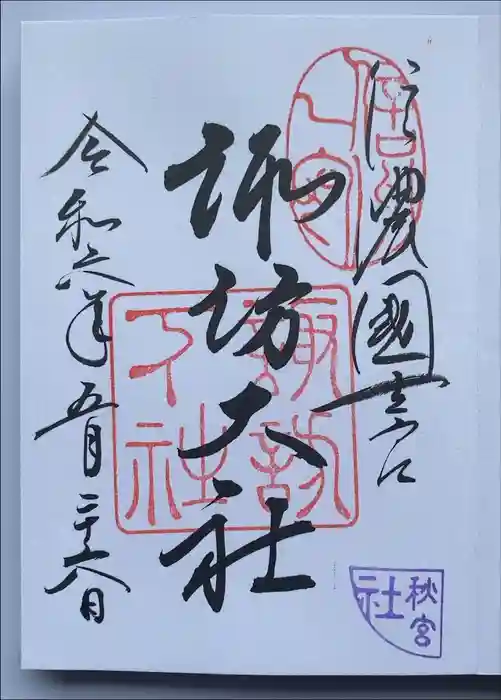 信濃國一之宮
諏訪大社
令和六年五月二十六日
信濃
一宮
諏訪
下社
秋宮
社